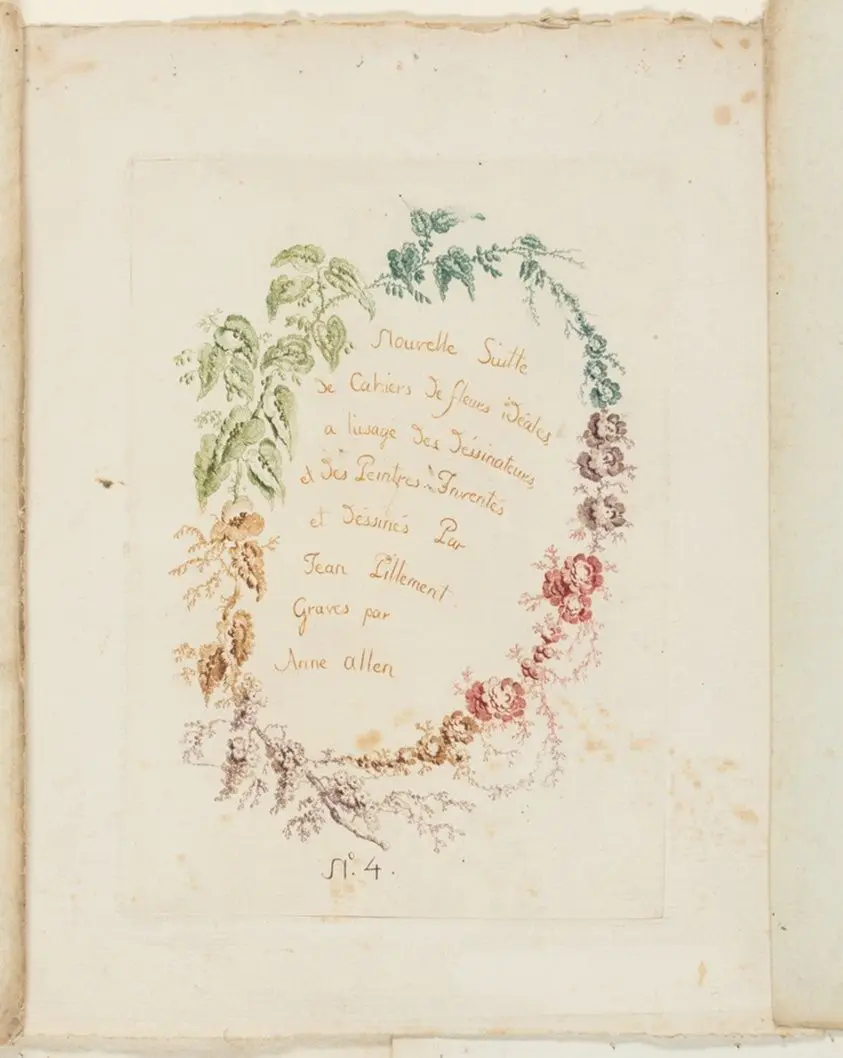 Nouvelle Suitte
De Cahiers De fleurs idéales,
a l'usage Des Déssinateurs,
et Des Peintres. Inventés
et Déssinés Par
Jean Pillement.
Graves par
Anne allen
N.° 4.